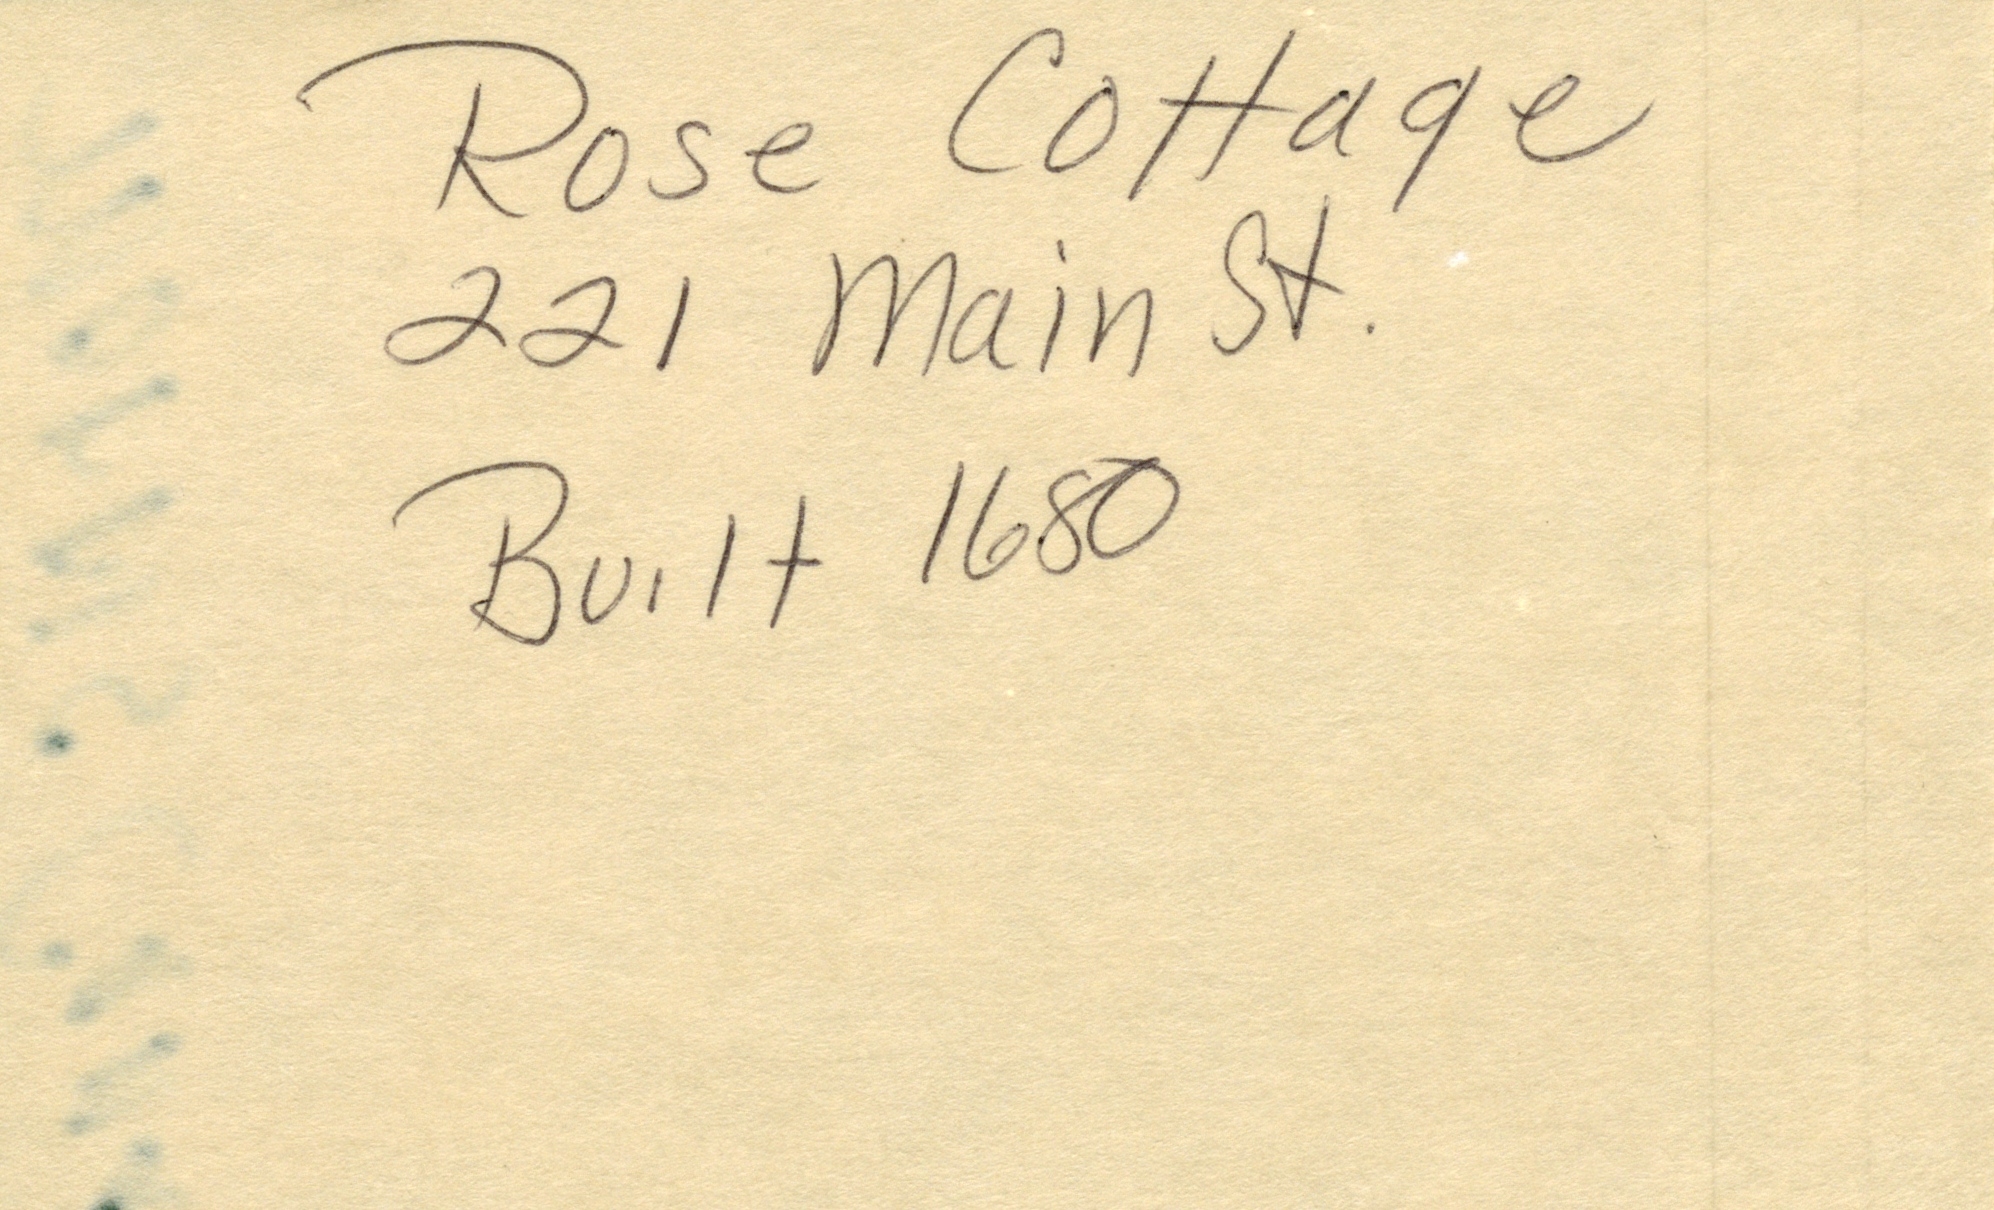 Rose Cottage
221 Main St.
Built 1680